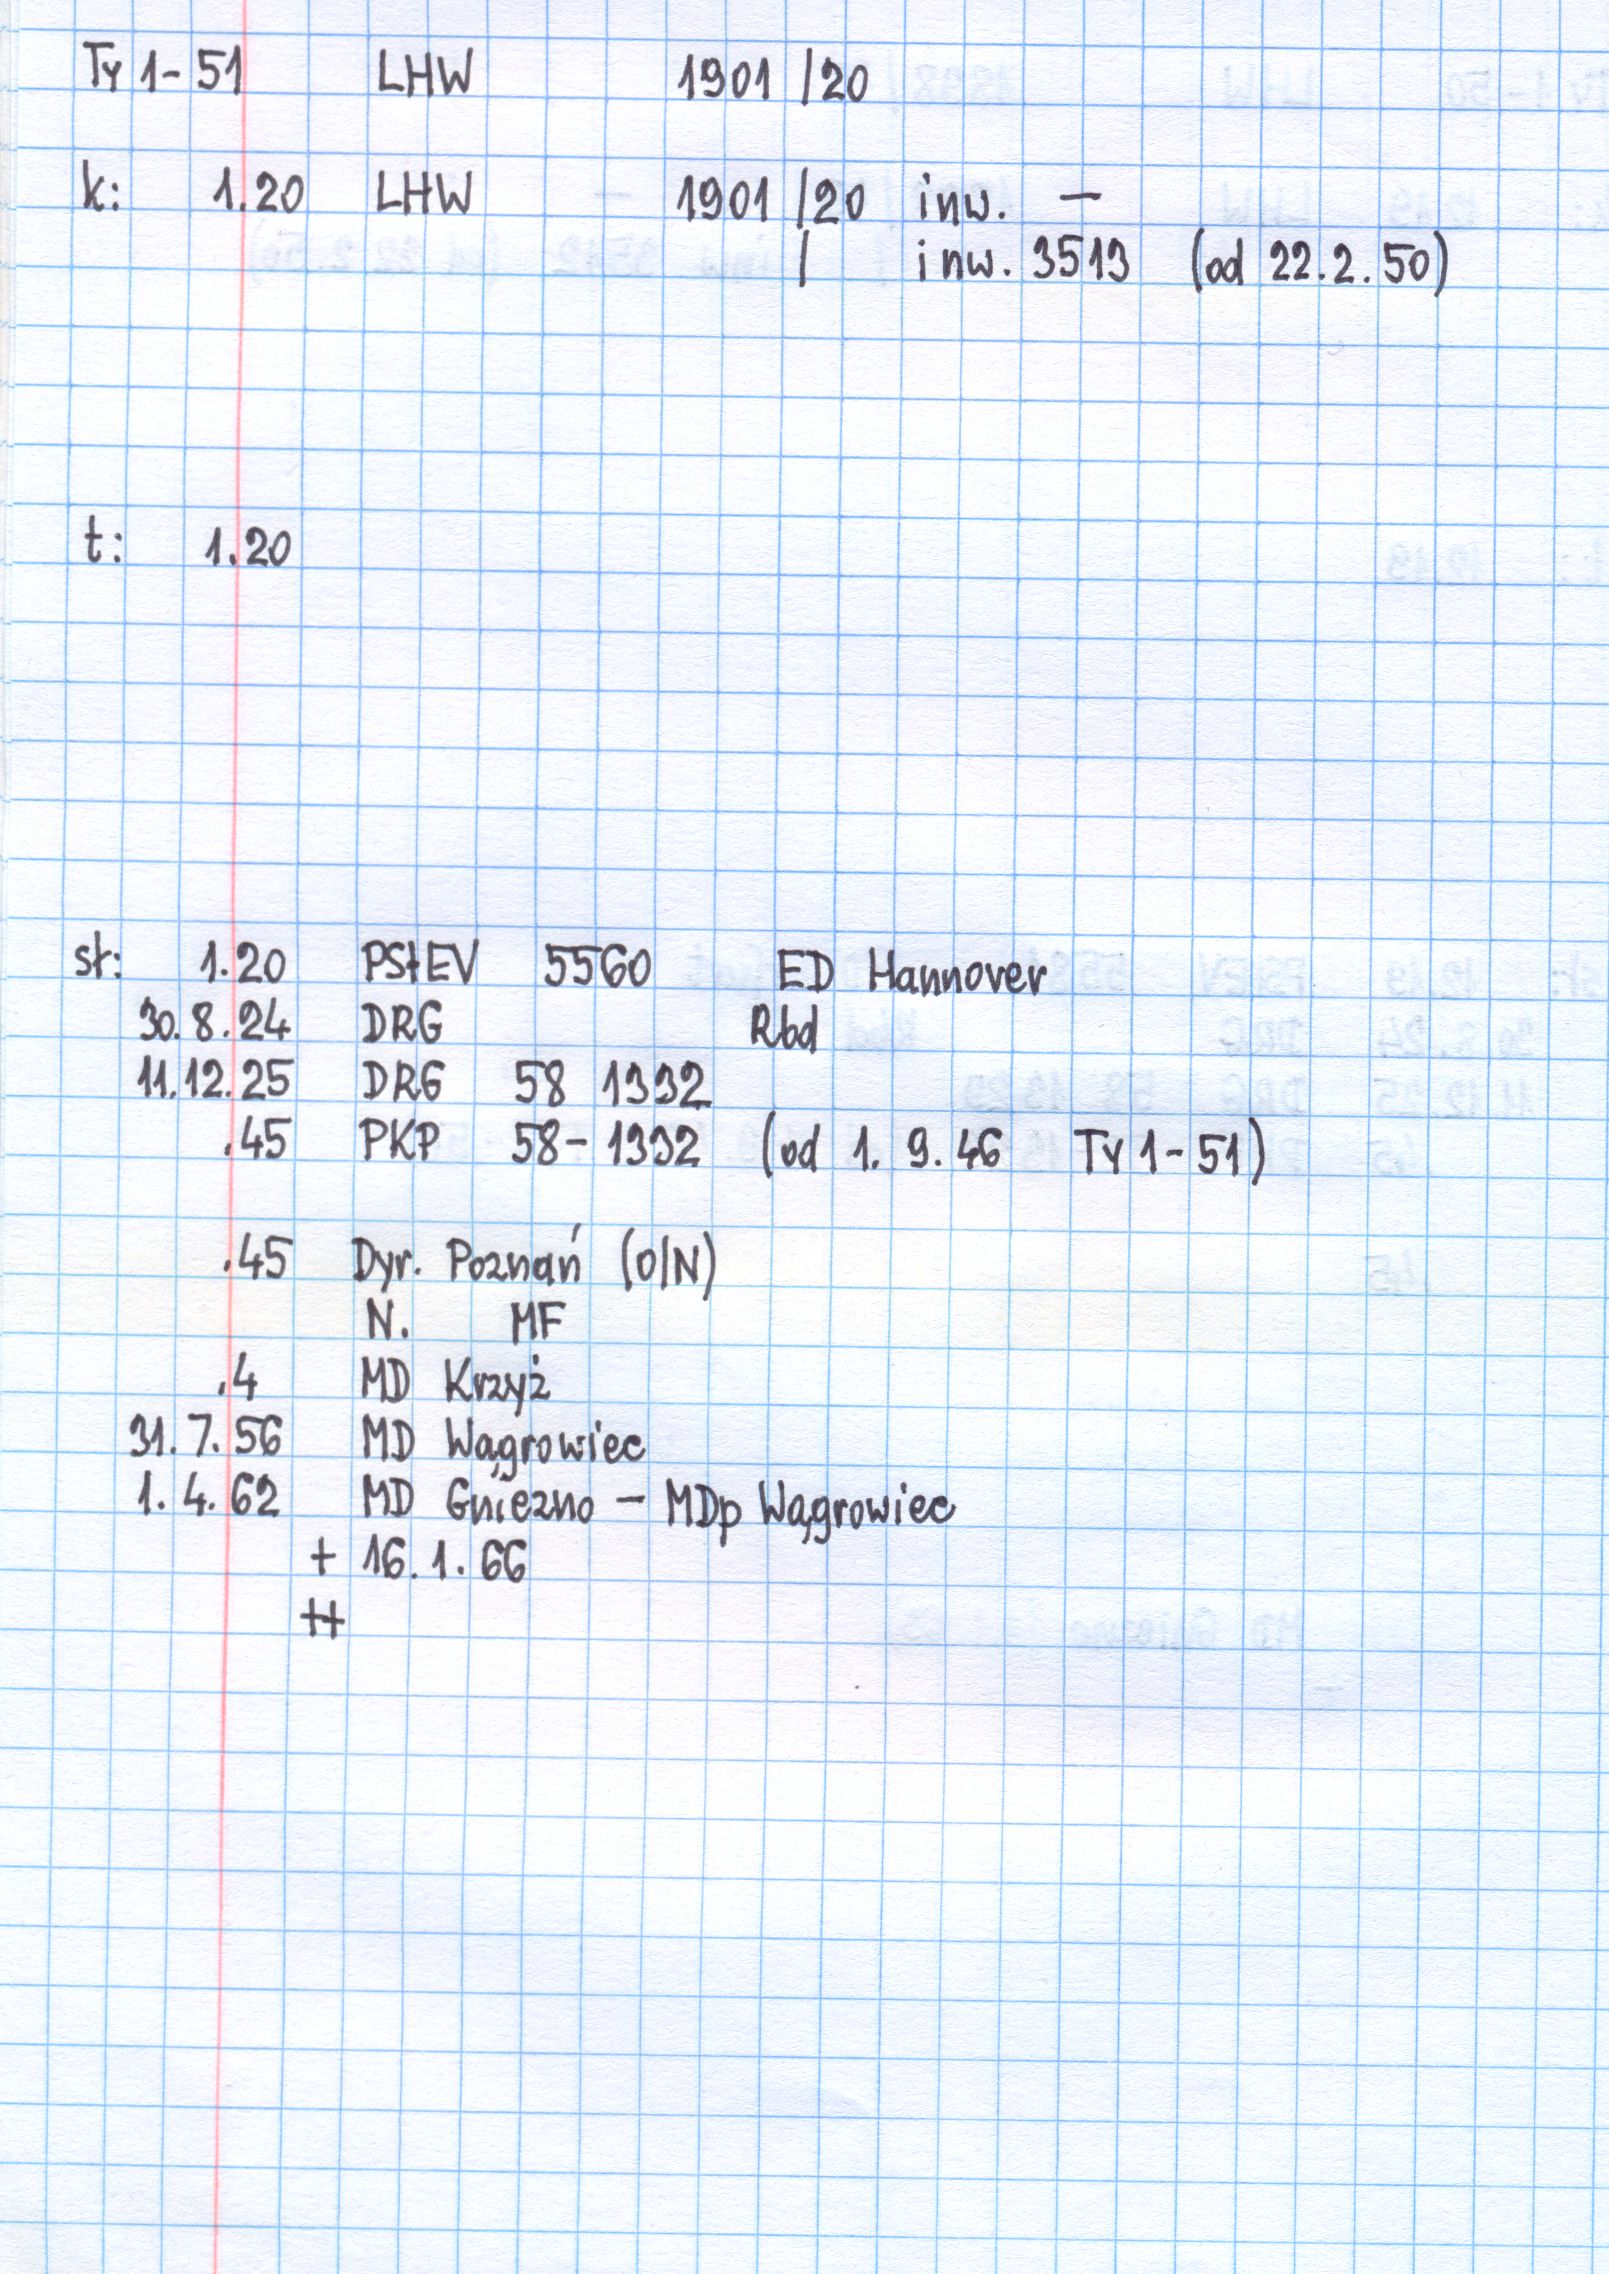 Ty 1-51 LHW 1901 /20
k: 1.20 LHW 1901 /20 inw. —
/ inw. 3513 (od 22.2.50)
t: 1.20
st: 1.20 PStEV 5560 ED Hannover
30.8.24 DRG Rbd
11.12.25 DRG 58 1332
.45 PKP 58-1332 (od 1.9.46 Ty 1-51)
.45 Dyr. Poznań (O/N)
N. MF
.4 MD Krzyż
31.7.56 MD Wągrowiec
1.4.62 MD Gniezno - MDp Wągrowiec
+ 16.1.66
++